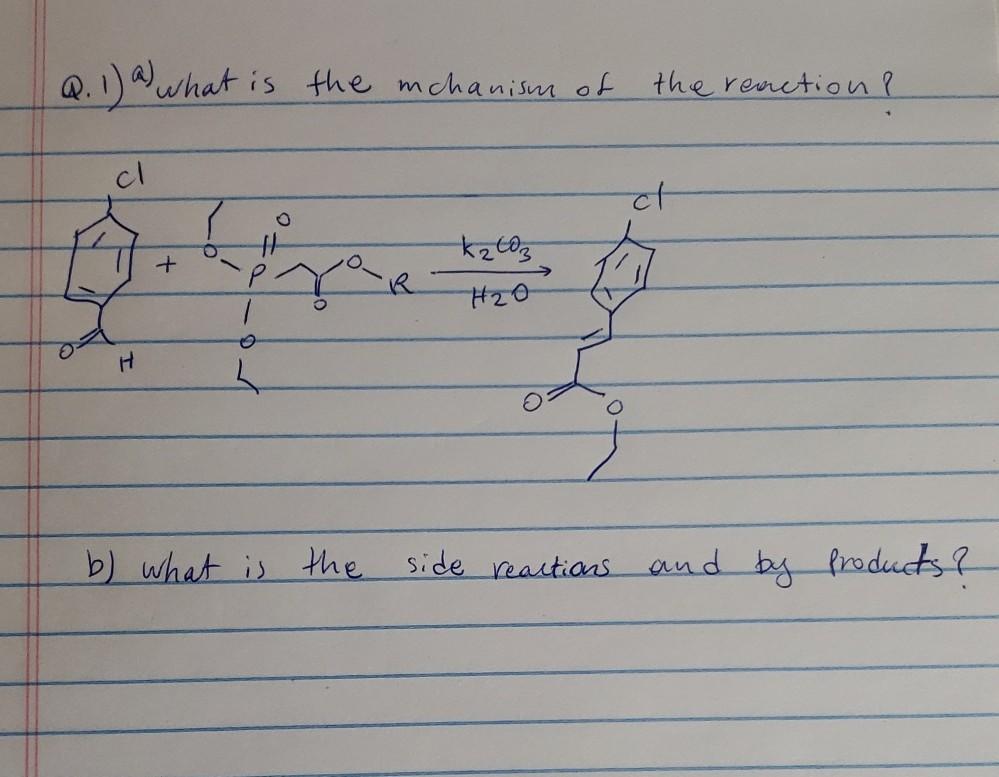 Q.1) a) what is the mchanism of the reaction?
Cl
O
O
P
O
R
O
O
O
H
+
K2CO3
H2O
Cl
O
O
b) what is the side reactions and by products?